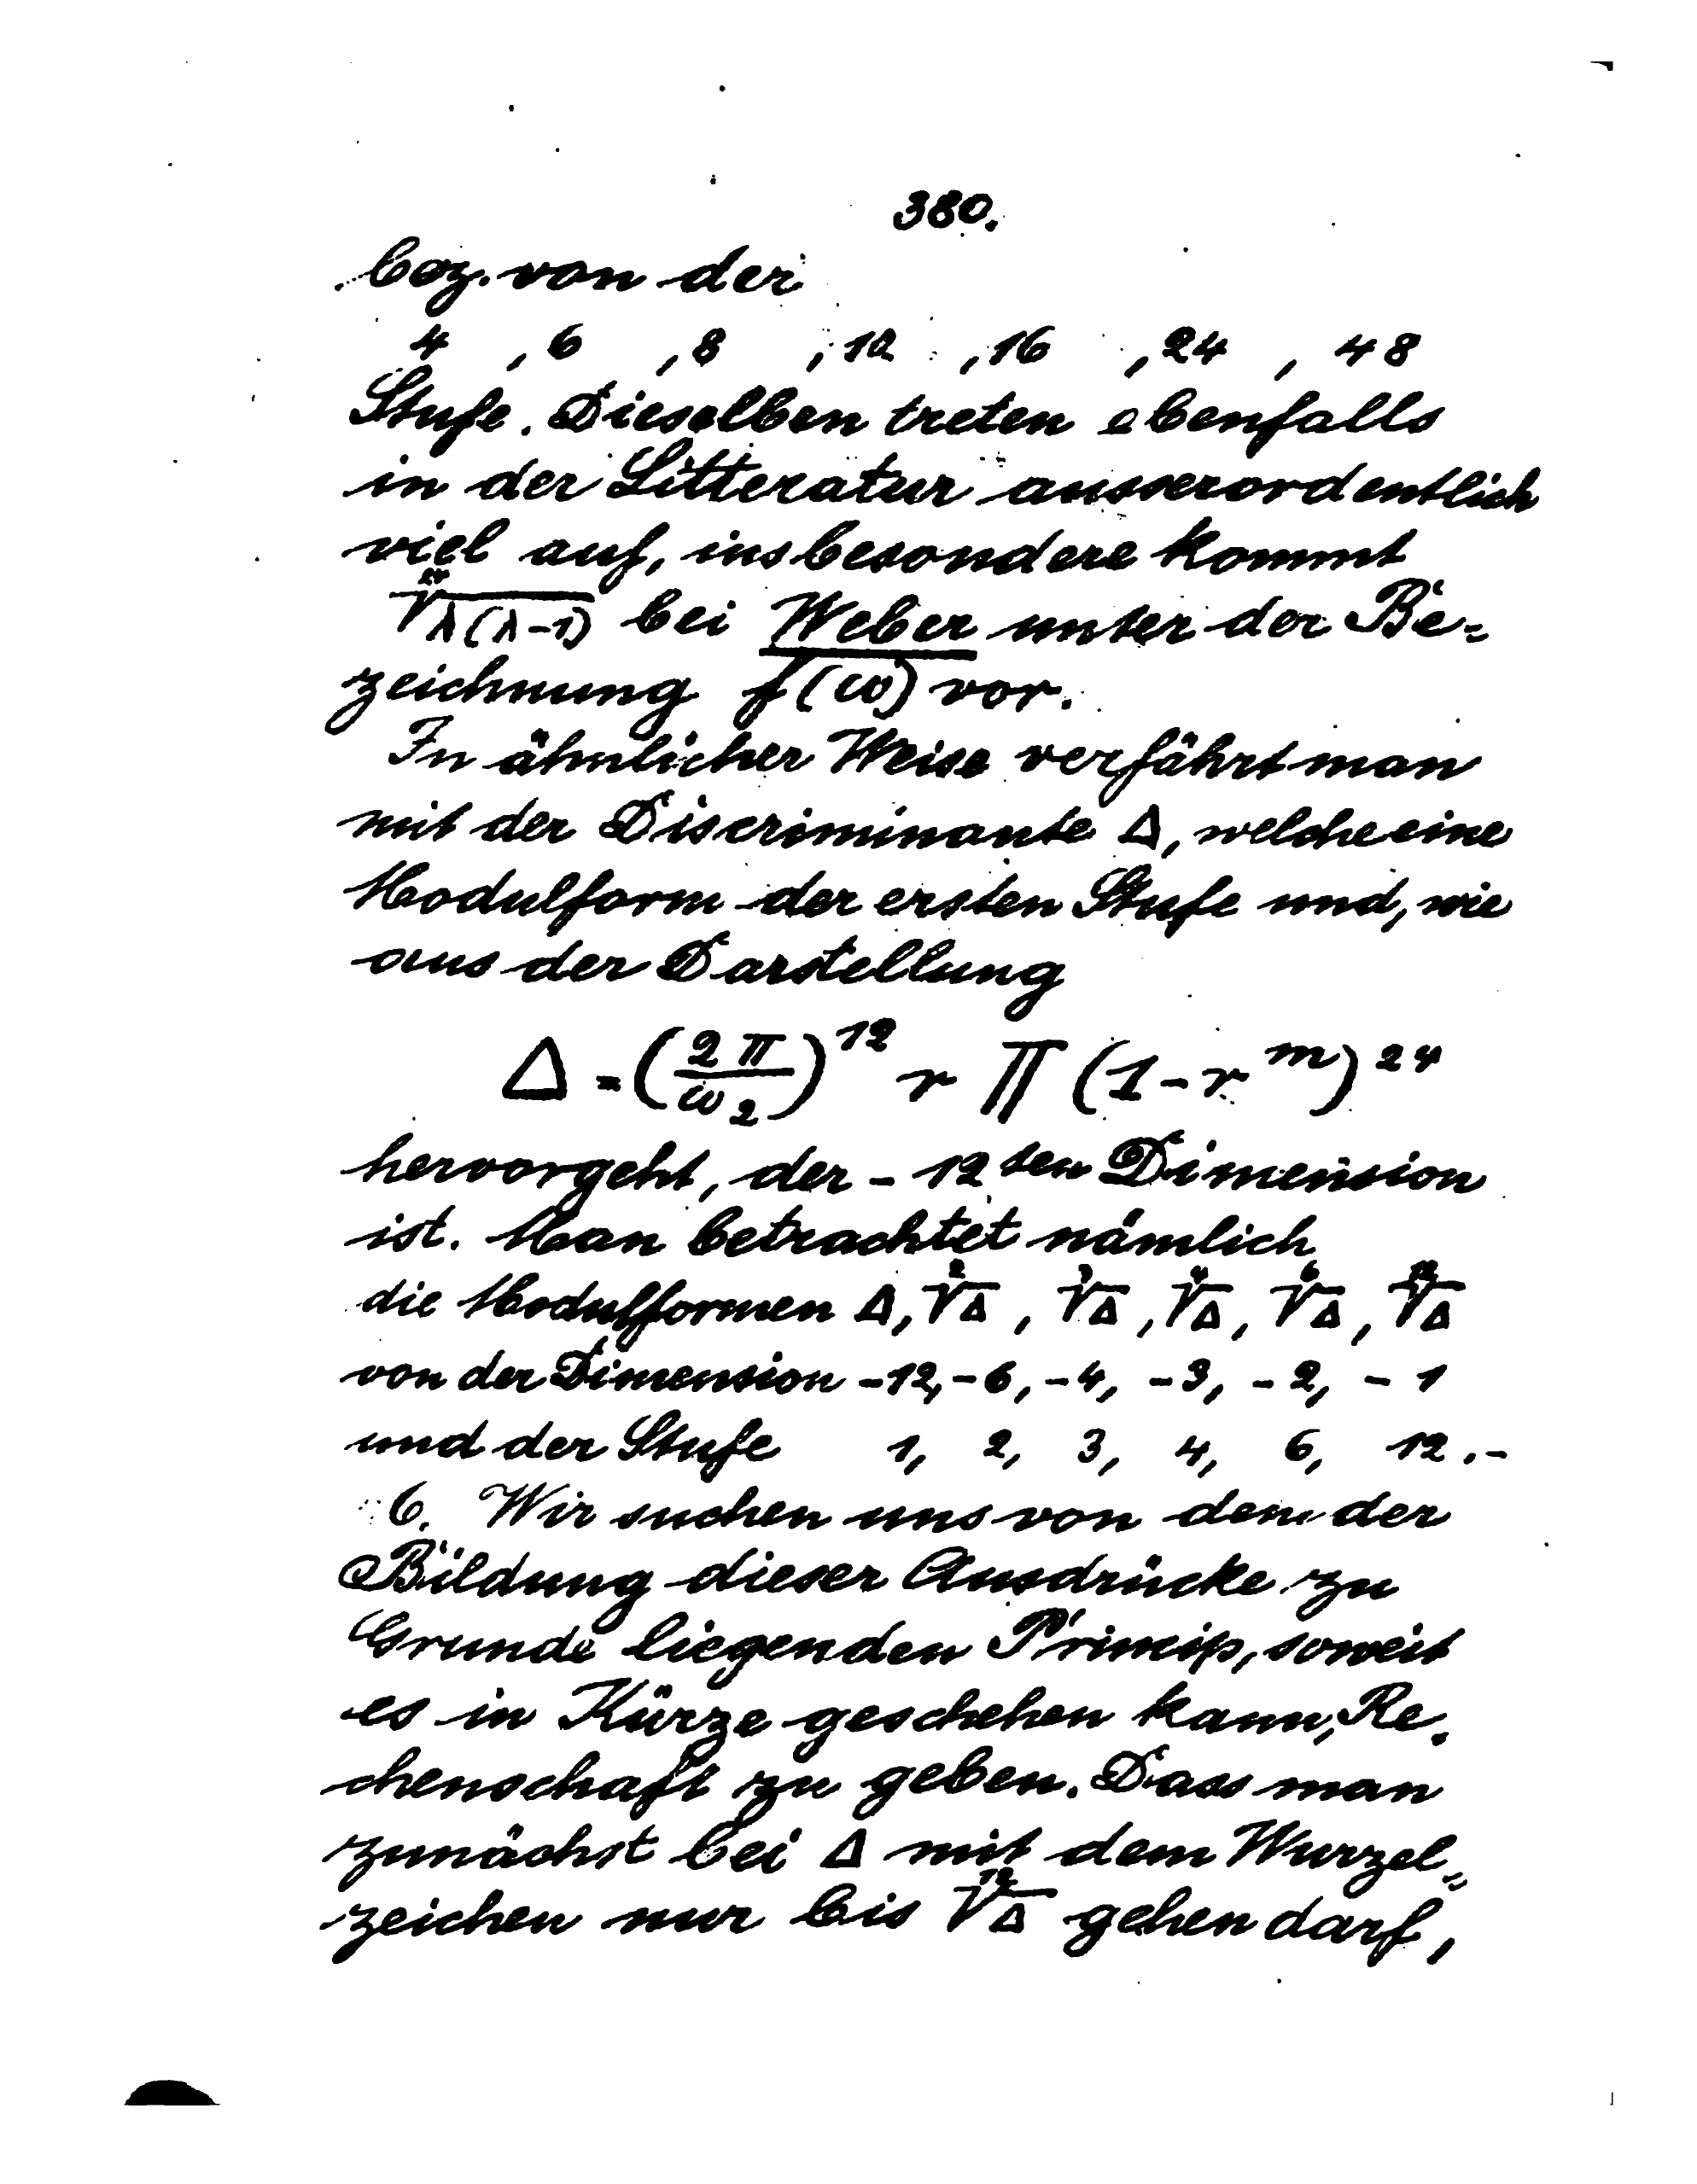 380.
bez. von der
4 , 6 , 8 , 12 , 16 , 24 , 48
Stufe. Dieselben treten ebenfalls
in der Litteratur ausserordentlich
viel auf, insbesondere kommt
\sqrt[24]{λ(λ-1)} bei Weber unter der Be-
zeichnung f(ω) vor.
In ähnlicher Weise verfährt man
mit der Discriminante Δ, welche eine
Modulform der ersten Stufe und, wie
aus der Darstellung
Δ = (2π/ω₂)¹² r ∏ (1-r^m)²⁴
hervorgeht, der - 12ten Dimension
ist. Man betrachtet nämlich
die Modulformen Δ, \sqrt[2]{Δ}, \sqrt[3]{Δ}, \sqrt[4]{Δ}, \sqrt[6]{Δ}, \sqrt[12]{Δ}
von der Dimension -12, -6, -4, -3, -2, -1
und der Stufe 1, 2, 3, 4, 6, 12.-
6. Wir suchen uns von dem der
Bildung dieser Ausdrücke zu
Grunde liegenden Princip, soweit
es in Kürze geschehen kann, Re-
chenschaft zu geben. Dass man
zunächst bei Δ mit dem Wurzel-
zeichen nur bis \sqrt[12]{Δ} gehen darf,